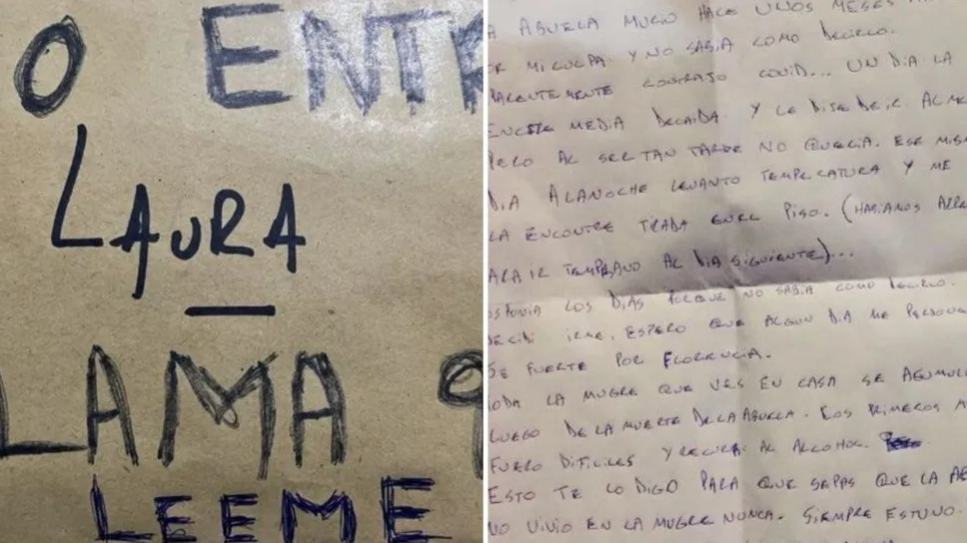 O ENTR
LAURA
LAMA 9
LEEME
A ABUELA MURIO HACE UNOS MESES
OR MI CULPA Y NO SABIA COMO DECIRLO.
PARENTEMENTE CONTRAJO COVID... UN DIA LA
ENCTRE MEDIA DECAIDA. Y LE DIJE DE IR AL ME
PERO AL SER TAN TARDE NO QUERIA. ESE MISM
DIA A LA NOCHE LEVANTO TEMPERATURA Y ME
LA ENCONTRE TIRADA EN EL PISO. (HABIAMOS ARRE
ARA IR TEMPRANO AL DIA SIGUIENTE)...
LOS DIAS PORQUE NO SABIA COMO DECIRLO.
DECIDI IRME, ESPERO QUE ALGUN DIA ME PERDONE
SE FUERTE POR FLORENCIA.
ODA LA MUGRE QUE VES EN CASA SE ACUMULO
LUEGO DE LA MUERTE DE LA ABUELA. LOS PRIMEROS M
FUERO DIFICILES Y RECURRI AL ALCOHOL.
ESTO TE LO DIGO PARA QUE SEPAS QUE LA AB
NO VIVIO EN LA MUGRE NUNCA. SIEMPRE ESTUVO